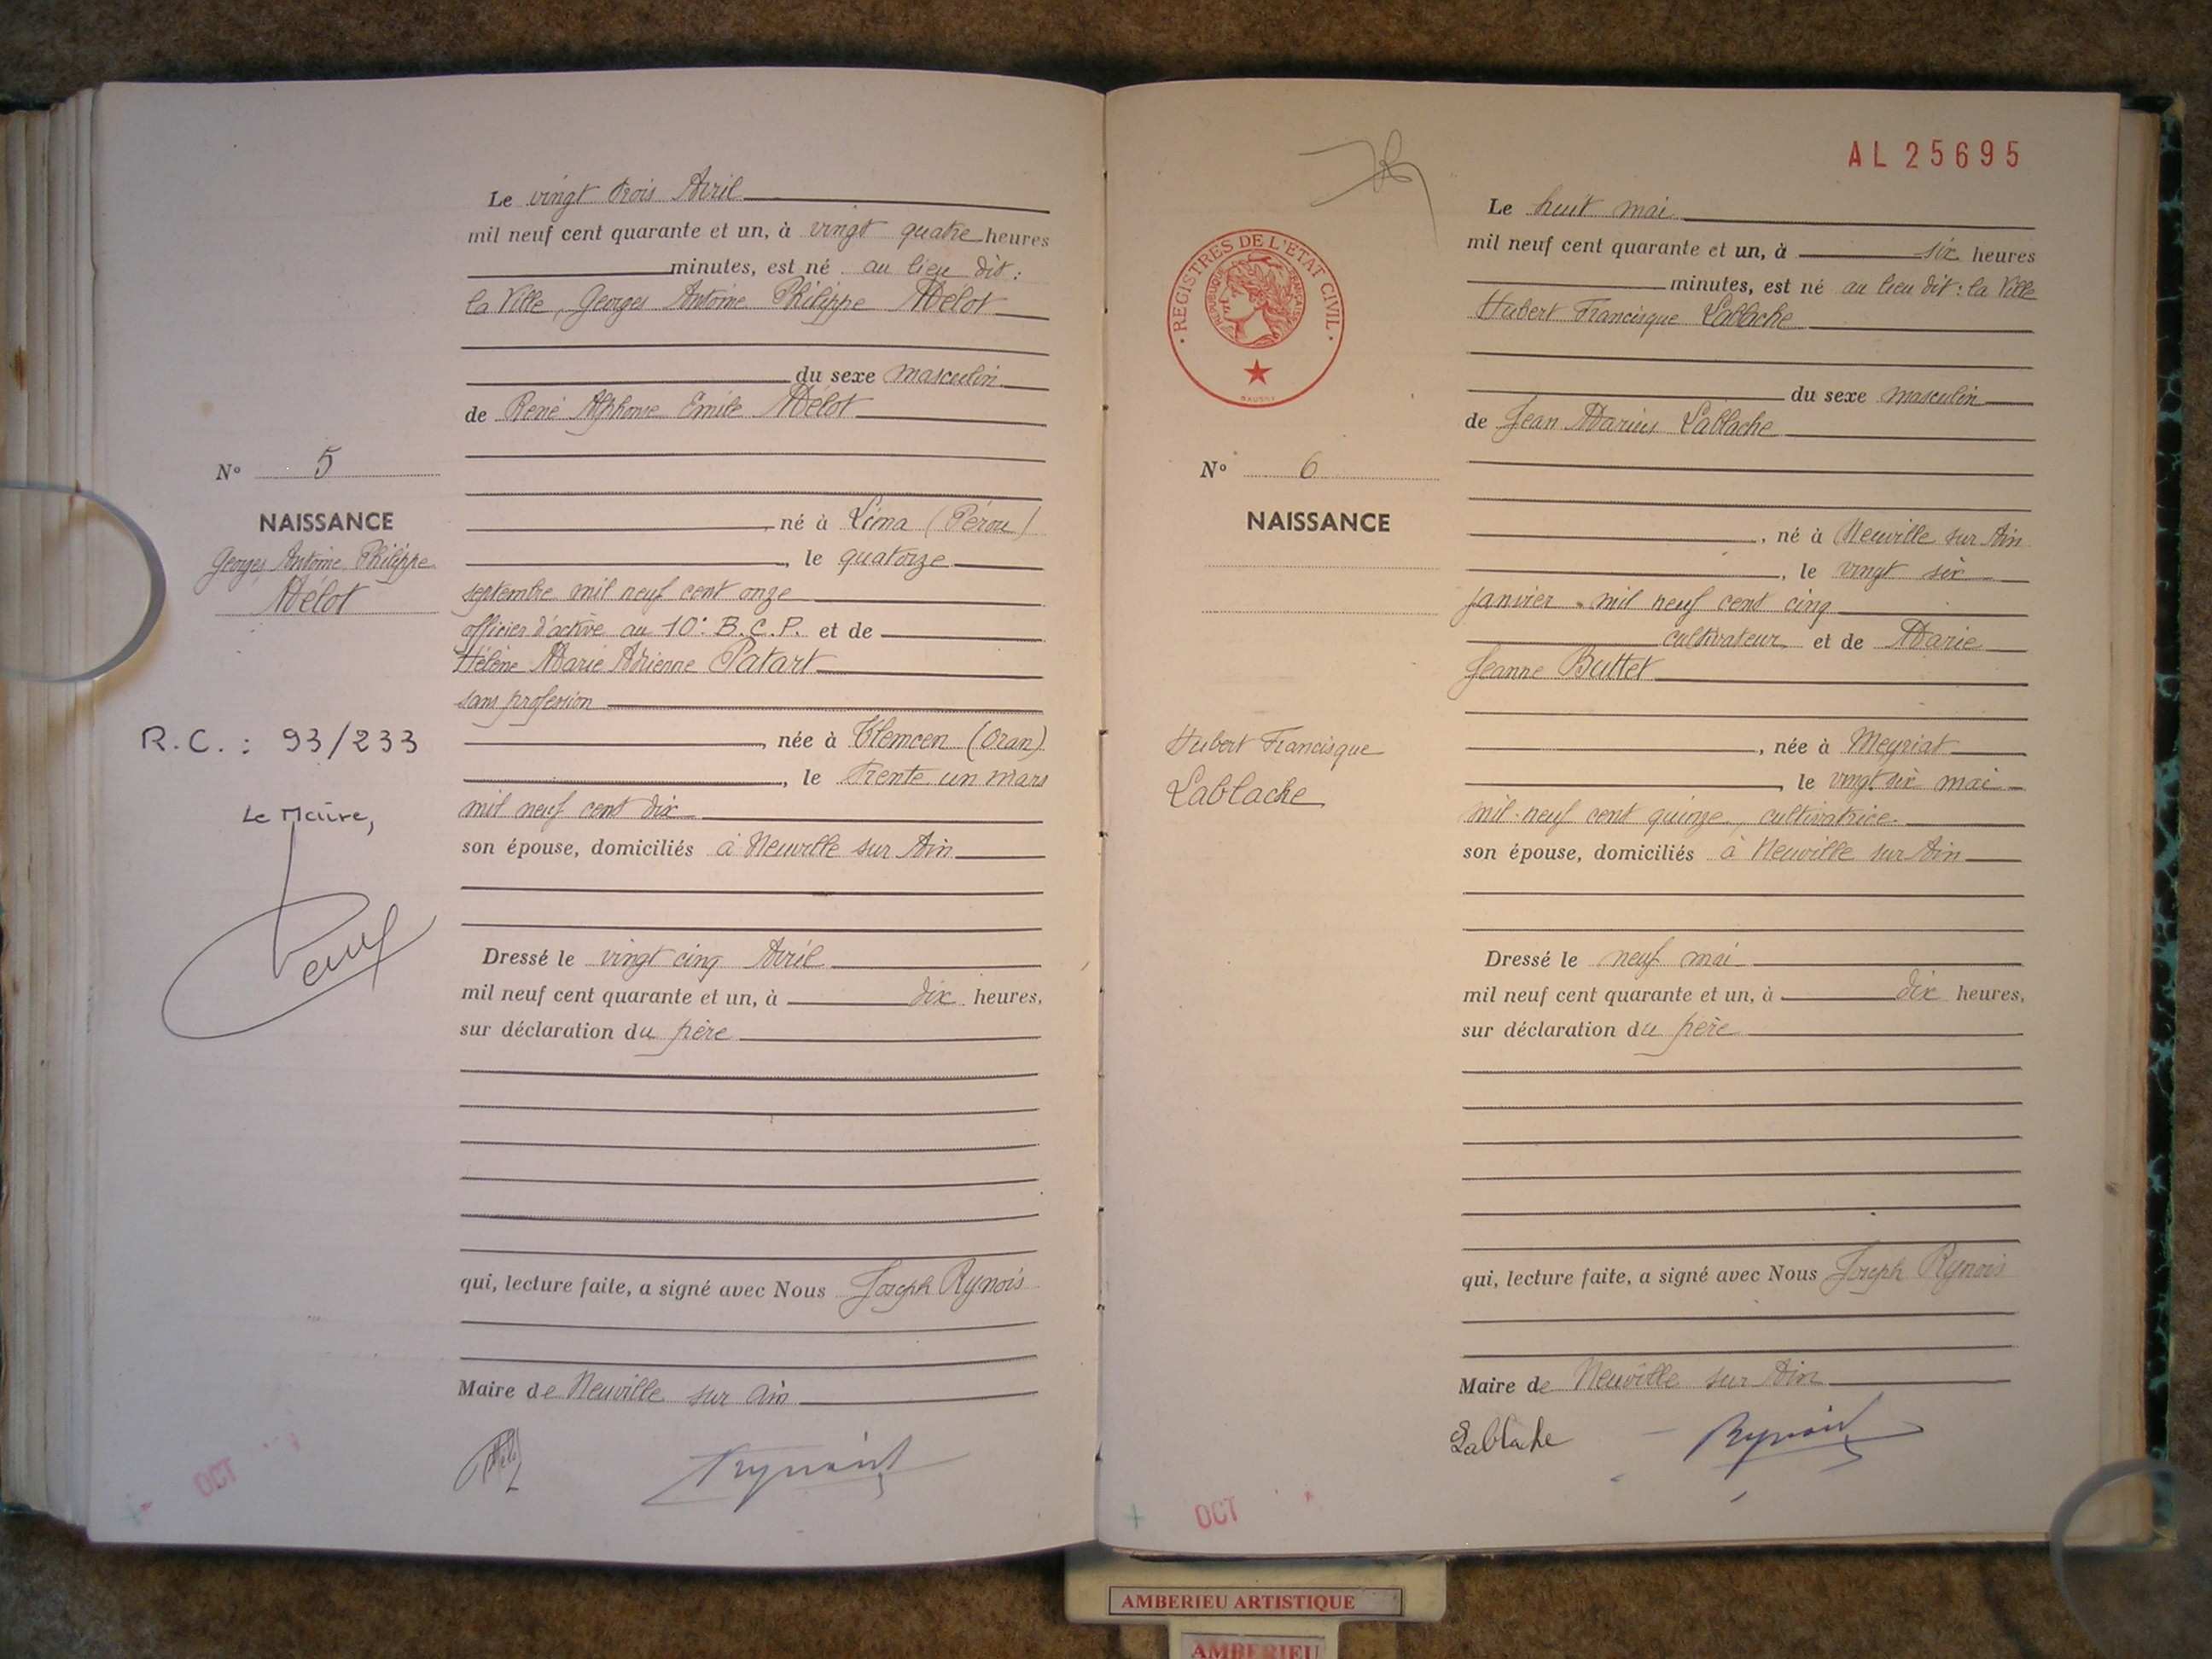 Le vingt trois Avril
mil neuf cent quarante et un, à vingt quatre heures
minutes, est né au lieu dit :
la Ville, Georges Antoine Philippe Mélot
du sexe masculin
de René Alphonse Emile Mélot
N° 5
NAISSANCE
Georges Antoine Philippe
Mélot
né à Lima (Pérou)
, le quatorze
septembre mil neuf cent onze
officier d'active au 10e B.C.P. et de
Hélène Marie Adrienne Patart
sans profession
R.C. : 93/233
Le Maire,
, née à Tlemcen (Oran)
, le trente un mars
mil neuf cent dix
son épouse, domiciliés à Neuville sur Ain
Dressé le vingt cinq Avril
mil neuf cent quarante et un, à dix heures,
sur déclaration du père
qui, lecture faite, a signé avec Nous Joseph Rynois
Maire de Neuville sur Ain
OCT
AL 25695
REGISTRES DE L'ETAT CIVIL
REPUBLIQUE FRANÇAISE
Le huit mai
mil neuf cent quarante et un, à six heures
minutes, est né au lieu dit : la Ville
Hubert Francisque Lablache
du sexe masculin
de Jean Marius Lablache
N° 6
NAISSANCE
Hubert Francisque
Lablache
, né à Neuville sur Ain
, le vingt six
janvier mil neuf cent cinq
cultivateur et de Marie
Jeanne Buttet
, née à Meyriat
, le vingt six mai
mil neuf cent quinze, cultivatrice
son épouse, domiciliés à Neuville sur Ain
Dressé le neuf mai
mil neuf cent quarante et un, à dix heures,
sur déclaration du père
qui, lecture faite, a signé avec Nous Joseph Rynois
Maire de Neuville sur Ain
Lablache Rynois
OCT
AMBERIEU ARTISTIQUE
AMBERIEU